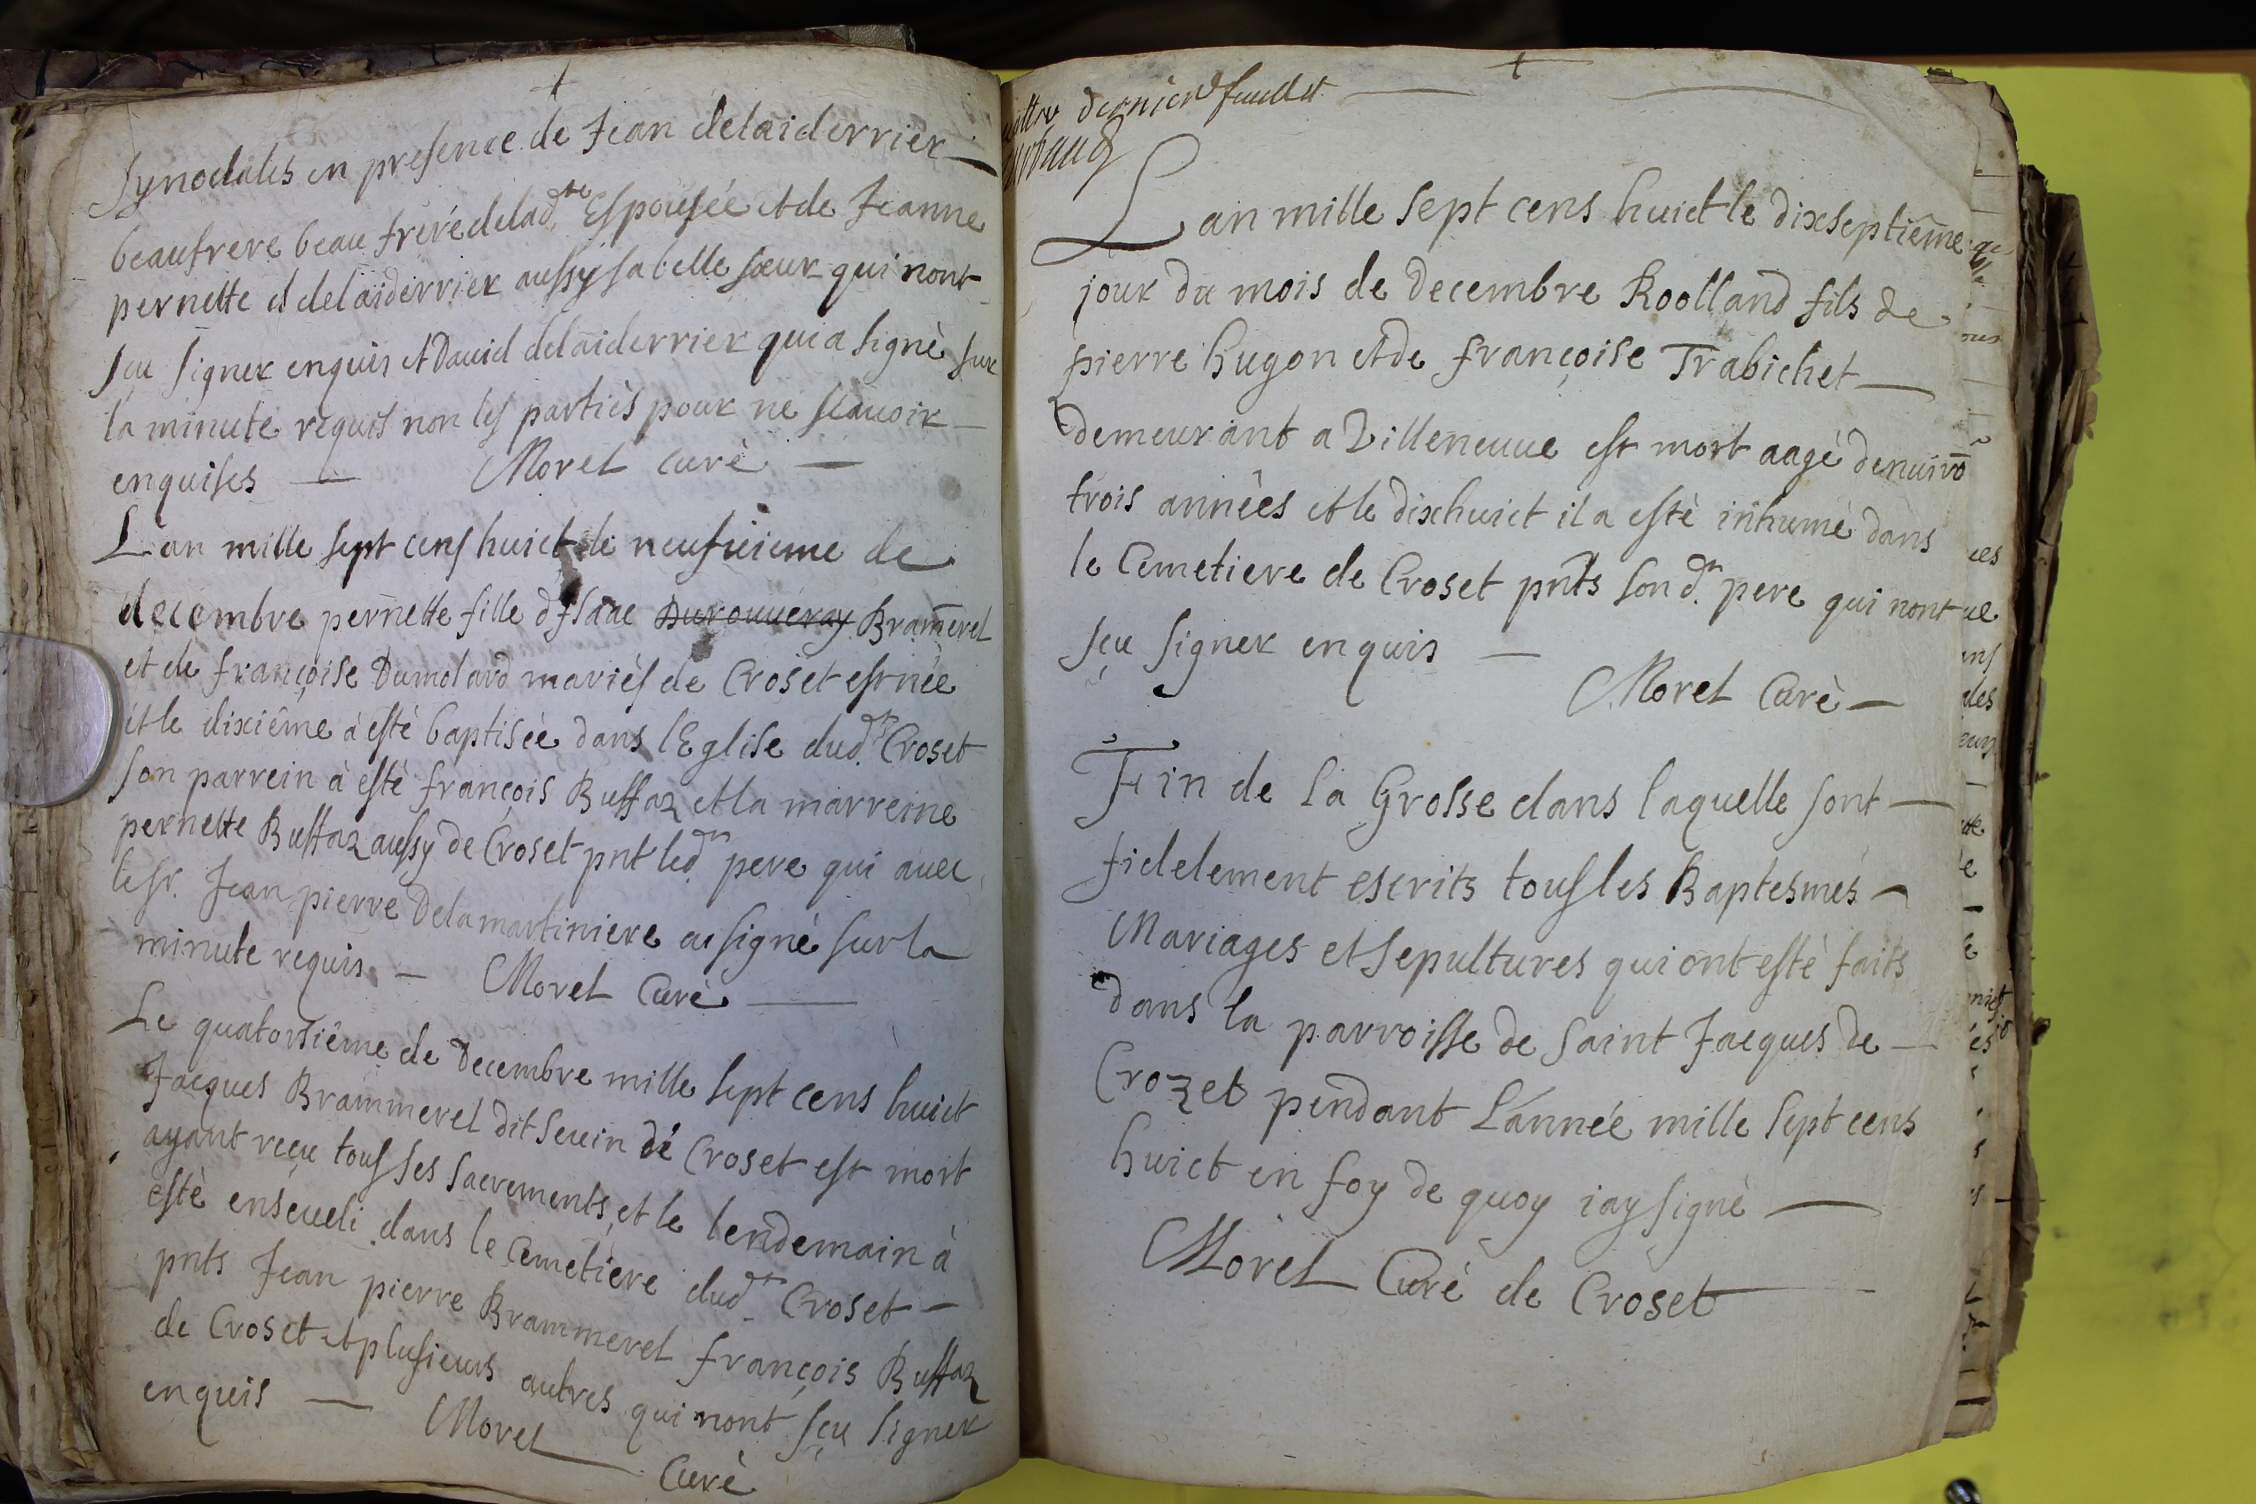 Synodales en presence de Jean delaiderrier
beaufrere beau frere delad.te Espousée et de Jeanne
pernette d delaiderrier aussy sa belle sœur qui nont
sçu signer enquis et David delaiderrier qui a signè sur
la minute requis non les partiès pour ne sçavoir
enquises — Morel curè —
Lan mille sept cens huict le neufvieme de
decembre pernette fille d'Isaac Durouveray Bram̄erel
et de françoise Dumolard mariés de Croset est née
et le dixiême à estè baptisée dans lEglise dud.t Croset
son parrein à estè françois Buffaz et la marreine
pernette Buffaz aussy de Croset pnt led.t pere qui avec
le sr. Jean pierre Delamartiniere a signé sur la
minute requis — Morel Curè
Le quatorsiême de decembre mille sept cens huict
Jacques Brammerel dit Sevin de Croset est mort
ayant reçu tous ses sacrements, et le lendemain à
estè enseveli dans le Cemetiere dud.t Croset —
pnts Jean pierre Brammerel françois Buffaz
de Croset et plusieurs autres qui nont sçu signer
enquis — Morel
Curè
dernier feuillet
Lan mille sept cens huict le dixseptiême
jour du mois de decembre Roolland fils de
pierre hugon et de françoise Trabichet
demeurant a Villeneuve est mort aagè denvirō
trois annêes et le dixhuict il a estè inhumè dans
le Cemetiere de Croset pnts son d.t pere qui nont
sçu signer enquis —
Morel Curè —
Fin de la Grosse dans laquelle sont —
fidelement escrits tous les Baptesmes —
Mariages et sepultures qui ont estè faits
dans la parroisse de saint Jacques de —
Crozet pendant L'année mille sept cens
huict en foy de quoy iay signè
Morel Curé de Croset